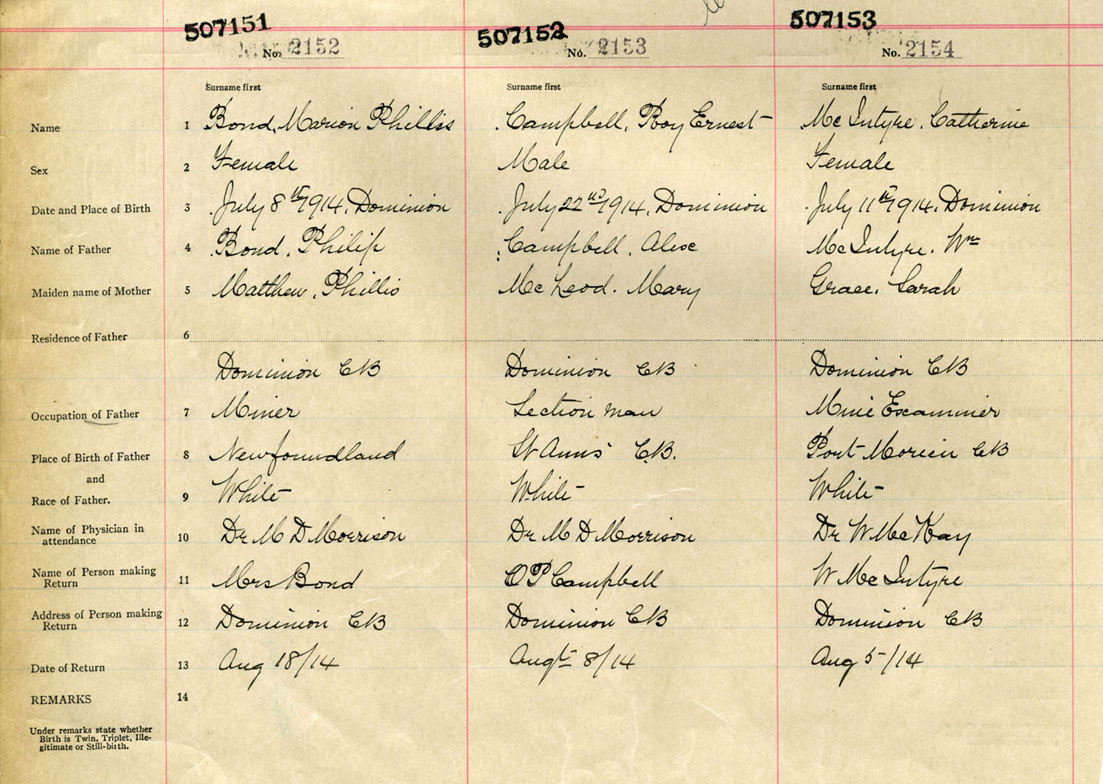 507151 507152 507153
No. 2152 No. 2153 No. 2154
Surname first Surname first Surname first
Name 1 Bond, Marion Phillis Campbell, Roy Ernest McIntyre, Catherine
Sex 2 Female Male Female
Date and Place of Birth 3 July 8th 1914, Dominion July 22nd 1914, Dominion July 11th 1914, Dominion
Name of Father 4 Bond, Philip Campbell, Alex McIntyre, Wm
Maiden name of Mother 5 Matthew, Phillis McLeod, Mary Grace, Sarah
Residence of Father 6
Dominion CB Dominion CB Dominion CB
Occupation of Father 7 Miner Section man Mine Examiner
Place of Birth of Father 8 Newfoundland St Anns CB. Port Morien CB
and
Race of Father. 9 White White White
Name of Physician in
attendance 10 Dr M D Morrison Dr M D Morrison Dr W McKay
Name of Person making
Return 11 Mrs Bond Campbell W McIntyre
Address of Person making
Return 12 Dominion CB Dominion CB Dominion CB
Date of Return 13 Aug 18/14 Augt 8/14 Aug 5/14
REMARKS 14
Under remarks state whether
Birth is Twin, Triplet, Ille-
gitimate or Still-birth.